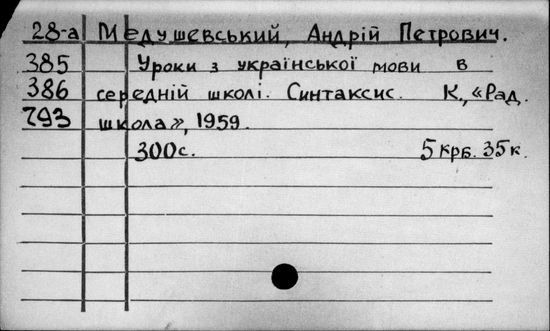 28-а Медушевський, Андрій Петрович.
385 Уроки з української мови в
386 середній школі. Синтаксис. К., «Рад.
793 школа», 1959.
300с. 5 крб. 35 к.